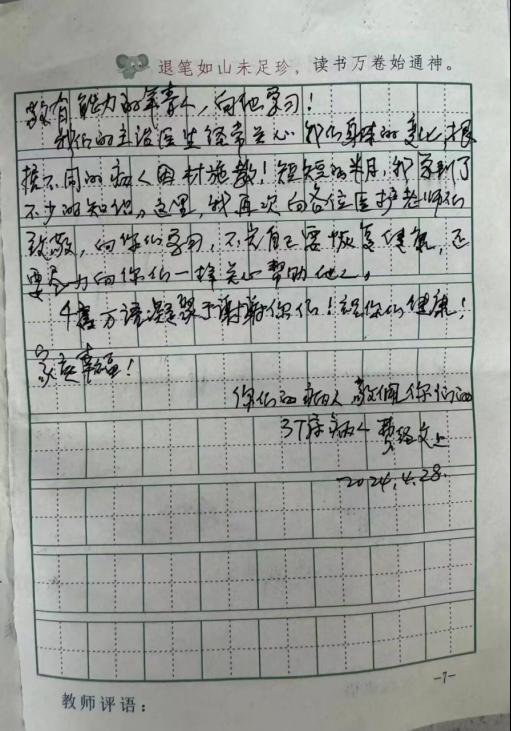 退笔如山未足珍，读书万卷始通神。
教有能力的年青人，向他学习！
我们的主治医生经常关心我们身体的变化，根
据不同的病人因材施教！短短的半月，我学到了
不少的知识。这里，我再次向各位医护老师们
致敬，向你们学习，不光自己要恢复健康，还
要尽力向你们一样关心帮助他人。
千言万语凝聚于谢谢你们！祝你们健康！
家庭幸福！
你们的病人敬佩你们的
37床病人 费经文上
2024.4.28.
-7-
教师评语：